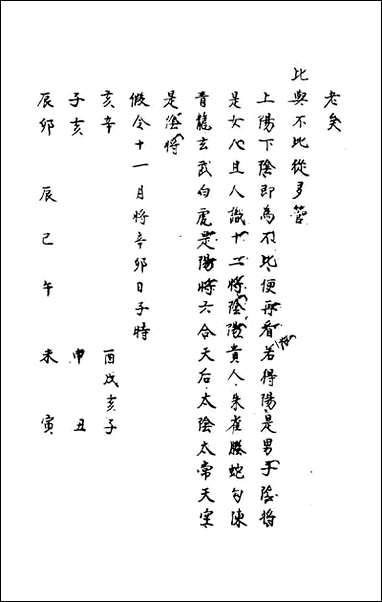 老矣
比與不比從多管
上陽下陰即為不比便再看將若得陽是男子陰將
是女人且人識十二將陰陽貴人朱雀螣蛇勾陳
青龍玄武白虎是陽將六合天后太陰太常天空
是陰將
假令十一月將辛卯日子時
亥辛 酉戌亥子
子亥 申 丑
辰卯 辰巳午 未 寅